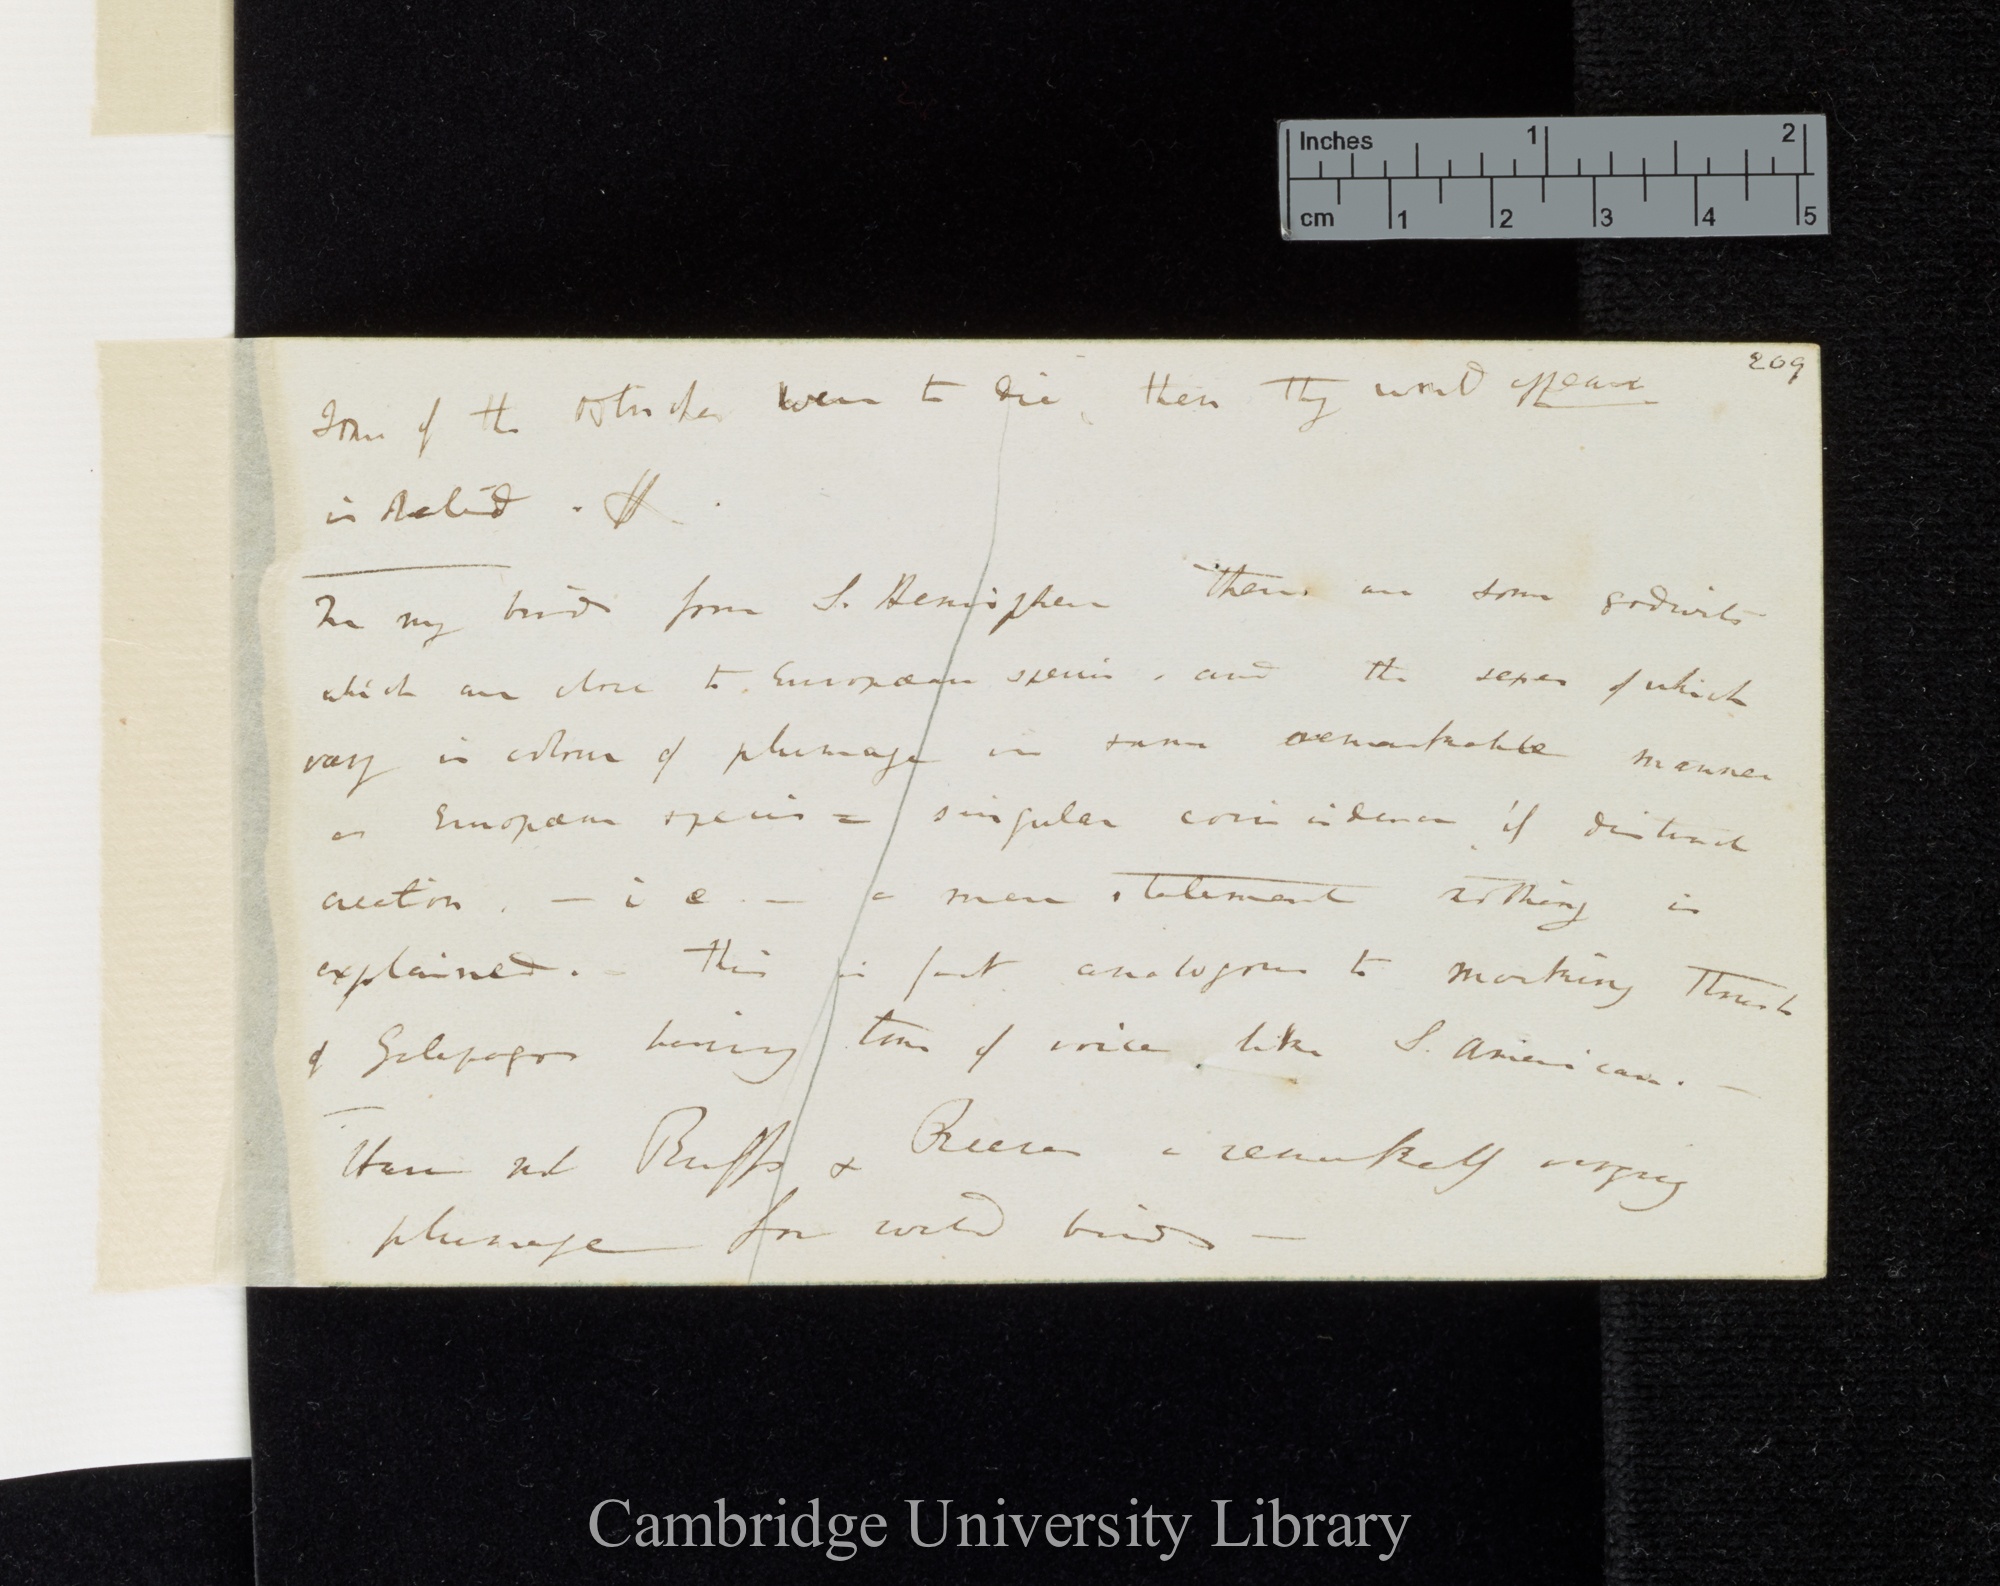 Inches 1 2
cm 1 2 3 4 5
209
Some of the ostriches were to die, then they would appear
isolated.
In my birds from S. Hemisphere there are some godwits
which are close to European species, and the sexes of which
vary in colour of plumage in same remarkable manner
as European species = singular coincidence if distinct
creation. — i e. — a mere statement nothing is
explained. - This is fact analogous to mocking Thrush
of Galapagos having tone of voice like S. American. —
Have not Ruffs & Reeves a remarkably varying
plumage for wild birds —
Cambridge University Library